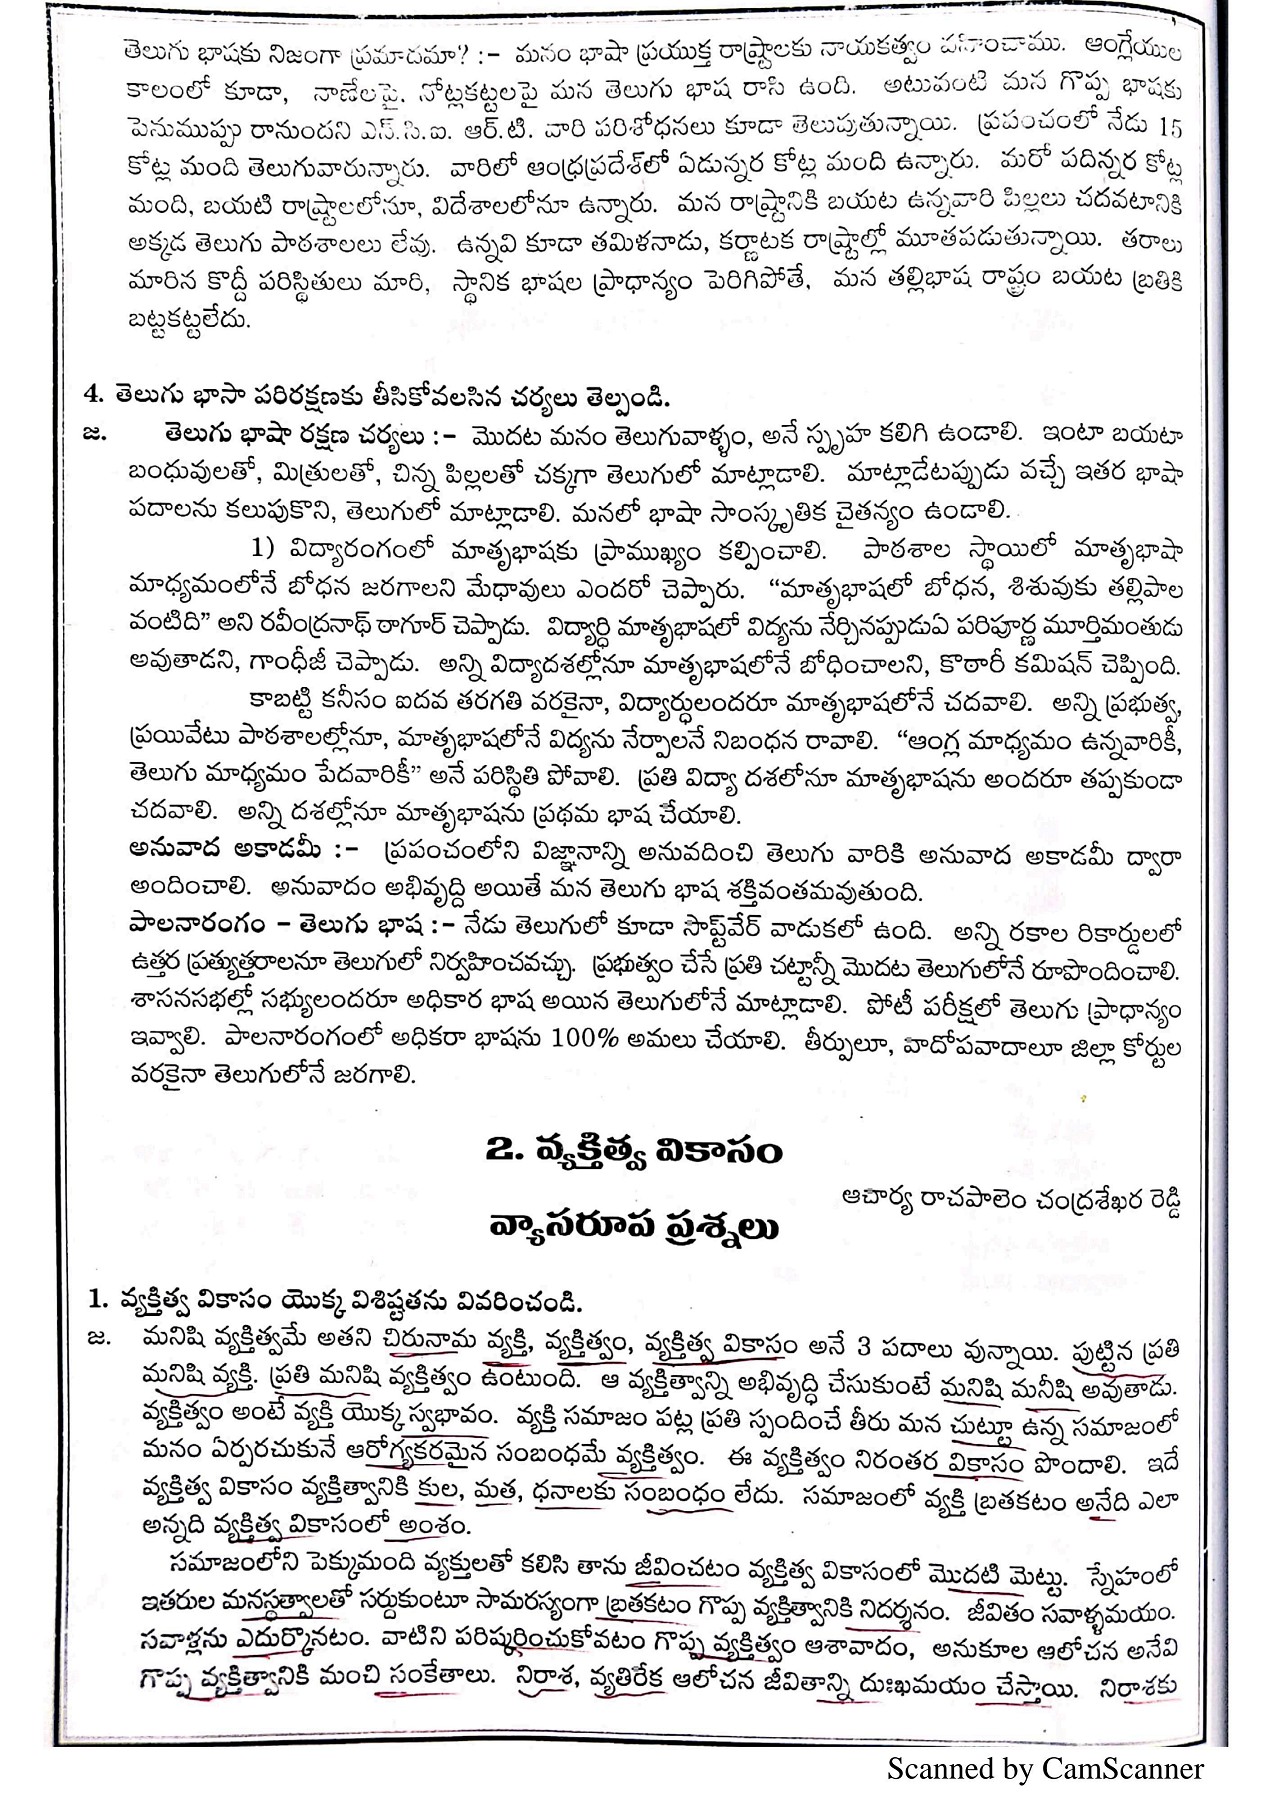 తెలుగు భాషకు నిజంగా ప్రమాదమా? :– మనం భాషా ప్రయుక్త రాష్ట్రాలకు నాయకత్వం వహించాము. ఆంగ్లేయుల
కాలంలో కూడా, నాణేలపై, నోట్లకట్టలపై మన తెలుగు భాష రాసి ఉంది. అటువంటి మన గొప్ప భాషకు
పెనుముప్పు రానుందని ఎన్.సి.ఐ. ఆర్.టి. వారి పరిశోధనలు కూడా తెలుపుతున్నాయి. ప్రపంచంలో నేడు 15
కోట్ల మంది తెలుగువారున్నారు. వారిలో ఆంధ్రప్రదేశ్‌లో ఏడున్నర కోట్ల మంది ఉన్నారు. మరో పదిన్నర కోట్ల
మంది, బయటి రాష్ట్రాలలోనూ, విదేశాలలోనూ ఉన్నారు. మన రాష్ట్రానికి బయట ఉన్నవారి పిల్లలు చదవటానికి
అక్కడ తెలుగు పాఠశాలలు లేవు. ఉన్నవి కూడా తమిళనాడు, కర్ణాటక రాష్ట్రాల్లో మూతపడుతున్నాయి. తరాలు
మారిన కొద్దీ పరిస్థితులు మారి, స్థానిక భాషల ప్రాధాన్యం పెరిగిపోతే, మన తల్లిభాష రాష్ట్రం బయట బ్రతికి
బట్టకట్టలేదు.
4. తెలుగు భాసా పరిరక్షణకు తీసికోవలసిన చర్యలు తెల్పండి.
జ. తెలుగు భాషా రక్షణ చర్యలు :– మొదట మనం తెలుగువాళ్ళం, అనే స్పృహ కలిగి ఉండాలి. ఇంటా బయటా
బంధువులతో, మిత్రులతో, చిన్న పిల్లలతో చక్కగా తెలుగులో మాట్లాడాలి. మాట్లాడేటప్పుడు వచ్చే ఇతర భాషా
పదాలను కలుపుకొని, తెలుగులో మాట్లాడాలి. మనలో భాషా సాంస్కృతిక చైతన్యం ఉండాలి.
1) విద్యారంగంలో మాతృభాషకు ప్రాముఖ్యం కల్పించాలి. పాఠశాల స్థాయిలో మాతృభాషా
మాధ్యమంలోనే బోధన జరగాలని మేధావులు ఎందరో చెప్పారు. “మాతృభాషలో బోధన, శిశువుకు తల్లిపాల
వంటిది” అని రవీంద్రనాథ్ ఠాగూర్ చెప్పాడు. విద్యార్థి మాతృభాషలో విద్యను నేర్చినప్పుడుఏ పరిపూర్ణ మూర్తిమంతుడు
అవుతాడని, గాంధీజీ చెప్పాడు. అన్ని విద్యాదశల్లోనూ మాతృభాషలోనే బోధించాలని, కొఠారీ కమిషన్ చెప్పింది.
కాబట్టి కనీసం ఐదవ తరగతి వరకైనా, విద్యార్థులందరూ మాతృభాషలోనే చదవాలి. అన్ని ప్రభుత్వ,
ప్రయివేటు పాఠశాలల్లోనూ, మాతృభాషలోనే విద్యను నేర్పాలనే నిబంధన రావాలి. “ఆంగ్ల మాధ్యమం ఉన్నవారికీ,
తెలుగు మాధ్యమం పేదవారికీ” అనే పరిస్థితి పోవాలి. ప్రతి విద్యా దశలోనూ మాతృభాషను అందరూ తప్పకుండా
చదవాలి. అన్ని దశల్లోనూ మాతృభాషను ప్రథమ భాష చేయాలి.
అనువాద అకాడమీ :– ప్రపంచంలోని విజ్ఞానాన్ని అనువదించి తెలుగు వారికి అనువాద అకాడమీ ద్వారా
అందించాలి. అనువాదం అభివృద్ది అయితే మన తెలుగు భాష శక్తివంతమవుతుంది.
పాలనారంగం – తెలుగు భాష :– నేడు తెలుగులో కూడా సాఫ్ట్‌వేర్ వాడుకలో ఉంది. అన్ని రకాల రికార్డులలో
ఉత్తర ప్రత్యుత్తరాలనూ తెలుగులో నిర్వహించవచ్చు. ప్రభుత్వం చేసే ప్రతి చట్టాన్నీ మొదట తెలుగులోనే రూపొందించాలి.
శాసనసభల్లో సభ్యులందరూ అధికార భాష అయిన తెలుగులోనే మాట్లాడాలి. పోటీ పరీక్షలో తెలుగు ప్రాధాన్యం
ఇవ్వాలి. పాలనారంగంలో అధికరా భాషను 100% అమలు చేయాలి. తీర్పులూ, హదోపవాదాలూ జిల్లా కోర్టుల
వరకైనా తెలుగులోనే జరగాలి.
2. వ్యక్తిత్వ వికాసం
ఆచార్య రాచపాలెం చంద్రశేఖర రెడ్డి
వ్యాసరూప ప్రశ్నలు
1. వ్యక్తిత్వ వికాసం యొక్క విశిష్టతను వివరించండి.
జ. మనిషి వ్యక్తిత్వమే అతని చిరునామ వ్యక్తి, వ్యక్తిత్వం, వ్యక్తిత్వ వికాసం అనే 3 పదాలు వున్నాయి. పుట్టిన ప్రతి
మనిషి వ్యక్తి. ప్రతి మనిషి వ్యక్తిత్వం ఉంటుంది. ఆ వ్యక్తిత్వాన్ని అభివృద్ధి చేసుకుంటే మనిషి మనీషి అవుతాడు.
వ్యక్తిత్వం అంటే వ్యక్తి యొక్క స్వభావం. వ్యక్తి సమాజం పట్ల ప్రతి స్పందించే తీరు మన చుట్టూ ఉన్న సమాజంలో
మనం ఏర్పరచుకునే ఆరోగ్యకరమైన సంబంధమే వ్యక్తిత్వం. ఈ వ్యక్తిత్వం నిరంతర వికాసం పొందాలి. ఇదే
వ్యక్తిత్వ వికాసం వ్యక్తిత్వానికి కుల, మత, ధనాలకు సంబంధం లేదు. సమాజంలో వ్యక్తి బ్రతకటం అనేది ఎలా
అన్నది వ్యక్తిత్వ వికాసంలో అంశం.
సమాజంలోని పెక్కుమంది వ్యక్తులతో కలిసి తాను జీవించటం వ్యక్తిత్వ వికాసంలో మొదటి మెట్టు. స్నేహంలో
ఇతరుల మనస్తత్వాలతో సర్దుకుంటూ సామరస్యంగా బ్రతకటం గొప్ప వ్యక్తిత్వానికి నిదర్శనం. జీవితం సవాళ్ళమయం.
సవాళ్లను ఎదుర్కొనటం. వాటిని పరిష్కరించుకోవటం గొప్ప వ్యక్తిత్వం ఆశావాదం, అనుకూల ఆలోచన అనేవి
గొప్ప వ్యక్తిత్వానికి మంచి సంకేతాలు. నిరాశ, వ్యతిరేక ఆలోచన జీవితాన్ని దుఃఖమయం చేస్తాయి. నిరాశకు
Scanned by CamScanner